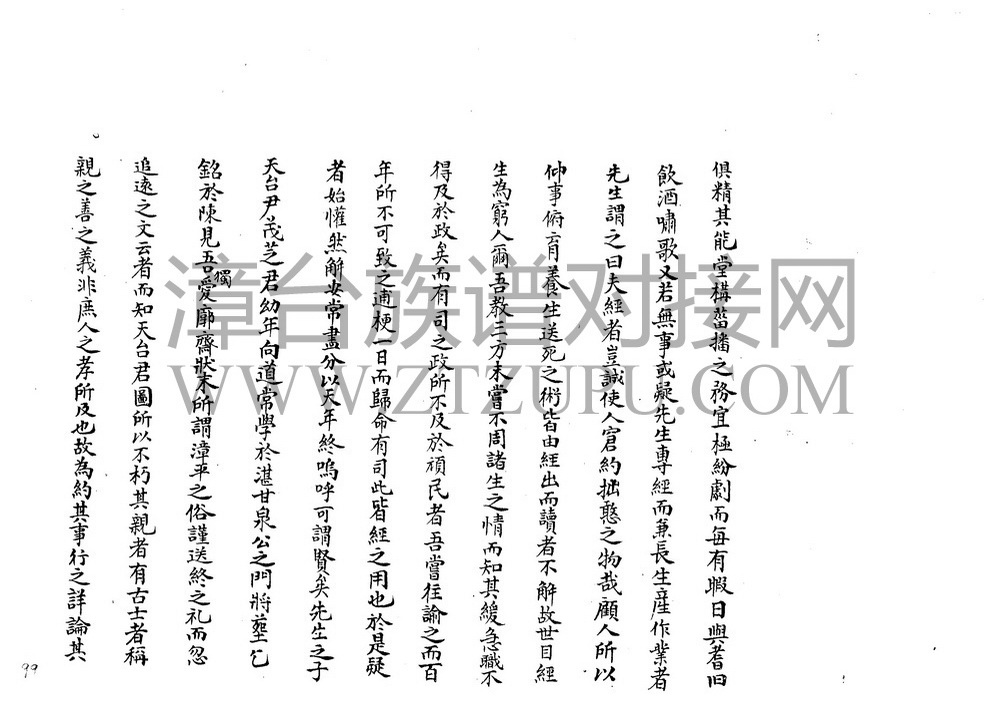 俱精其能堂構菑播之務宜極紛劇而每有暇日與耆旧
飲酒嘯歌又若無事或疑先生專經而兼長生産作業者
先生謂之曰夫經者豈誠使人窘約拙憨之物哉顧人所以
仰事俯育養生送死之術皆由經出而讀者不解故世目經
生為窮人爾吾教三方末嘗不周諸生之情而知其緩急職不
得及於政矣而有司之政所不及於頑民者吾嘗往諭之而百
年所不可致之逋梗一日而歸命有司此皆經之用也於是疑
者始懽然解安常盡分以天年終嗚呼可謂賢矣先生之子
天台尹茂芝君幼年向道常學於湛甘泉公之門將塟乞
銘於陳見吾獨愛廓齋狀末所謂漳平之俗謹送終之礼而忽
追遠之文云者而知天台君圖所以不朽其親者有古士者稱
親之善之義非庶人之孝所及也故為約其事行之詳論其
99
漳台族谱对接网
WWW.ZTZUPU.COM